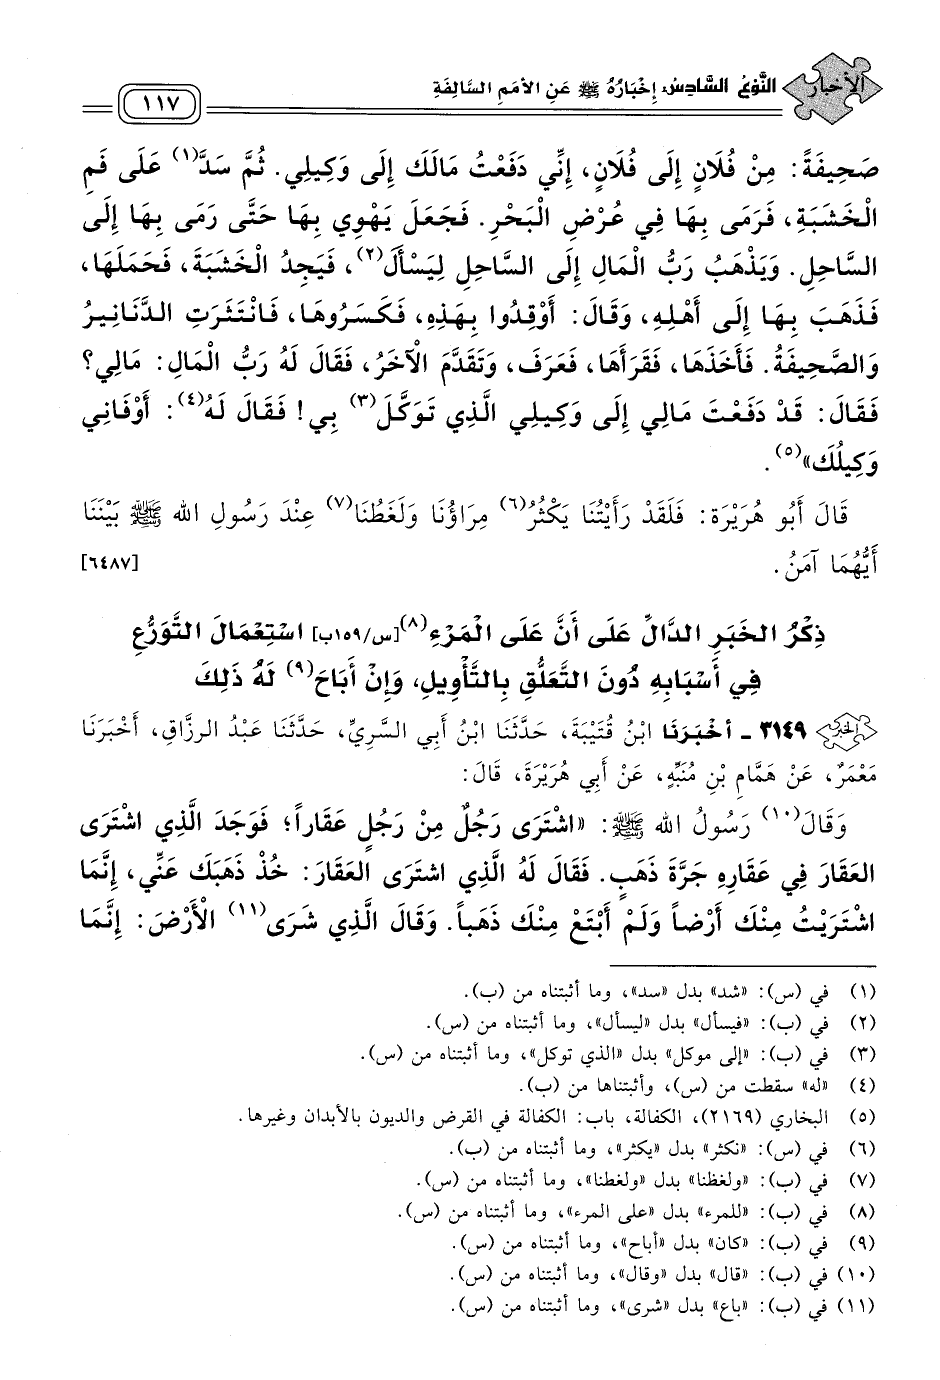 الأخبار النَّوْعُ السَّادِسُ: إِخْبَارُهُ ﷺ عَنِ الأُمَمِ السَّالِفَةِ ١١٧
صَحِيفَةً: مِنْ فُلَانٍ إِلَى فُلَانٍ، إِنِّي دَفَعْتُ مَالَكَ إِلَى وَكِيلِي. ثُمَّ سَدَّ(١) عَلَى فَمِ
الْخَشَبَةِ، فَرَمَى بِهَا فِي عُرْضِ الْبَحْرِ. فَجَعَلَ يَهْوِي بِهَا حَتَّى رَمَى بِهَا إِلَى
السَّاحِلِ. وَيَذْهَبُ رَبُّ الْمَالِ إِلَى السَّاحِلِ لِيَسْأَلَ(٢)، فَيَجِدُ الْخَشَبَةَ، فَحَمَلَهَا،
فَذَهَبَ بِهَا إِلَى أَهْلِهِ، وَقَالَ: أَوْقِدُوا بِهَذِهِ، فَكَسَرُوهَا، فَانْتَثَرَتِ الدَّنَانِيرُ
وَالصَّحِيفَةُ. فَأَخَذَهَا، فَقَرَأَهَا، فَعَرَفَ، وَتَقَدَّمَ الْآخَرُ، فَقَالَ لَهُ رَبُّ الْمَالِ: مَالِي؟
فَقَالَ: قَدْ دَفَعْتُ مَالِي إِلَى وَكِيلِي الَّذِي تَوَكَّلَ(٣) بِي! فَقَالَ لَهُ(٤): أَوْفَانِي
وَكِيلُكَ»(٥).
قَالَ أَبُو هُرَيْرَة: فَلَقَدْ رَأَيْتُنَا يَكْثُرُ(٦) مِرَاؤُنَا وَلَغَطُنَا(٧) عِنْدَ رَسُولِ الله ﷺ بَيْنَنَا
أَيُّهُمَا آمَنُ. [٦٤٨٧]
ذِكْرُ الخَبَرِ الدَّالِّ عَلَى أَنَّ عَلَى الْمَرْءِ(٨)[س/١٥٩ب] اسْتِعْمَالَ التَّوَرُّعِ
فِي أَسْبَابِهِ دُونَ التَّعَلُّقِ بِالتَّأْوِيلِ، وَإِنْ أَبَاحَ(٩) لَهُ ذَلِكَ
الخبر ٣١٤٩ - أَخْبَرَنَا ابْنُ قُتَيْبَةَ، حَدَّثَنَا ابْنُ أَبِي السَّرِيِّ، حَدَّثَنَا عَبْدُ الرزَّاقِ، أَخْبَرَنَا
مَعْمَرٌ، عَنْ هَمَّامِ بْنِ مُنَبِّهٍ، عَنْ أَبِي هُرَيْرَةَ، قَالَ:
وَقَالَ(١٠) رَسُولُ الله ﷺ: «اشْتَرَى رَجُلٌ مِنْ رَجُلٍ عَقَاراً؛ فَوَجَدَ الَّذِي اشْتَرَى
العَقَارَ فِي عَقَارِهِ جَرَّةَ ذَهَبٍ. فَقَالَ لَهُ الَّذِي اشْتَرَى العَقَارَ: خُذْ ذَهَبَكَ عَنِّي، إِنَّمَا
اشْتَرَيْتُ مِنْكَ أَرْضاً وَلَمْ أَبْتَعْ مِنْكَ ذَهَباً. وَقَالَ الَّذِي شَرَى(١١) الْأَرْضَ: إِنَّمَا
(١) في (س): «شد» بدل «سد»، وما أثبتناه من (ب).
(٢) في (ب): «فيسأل» بدل «ليسأل»، وما أثبتناه من (س).
(٣) في (ب): «إلى موكل» بدل «الذي توكل»، وما أثبتناه من (س).
(٤) «له» سقطت من (س)، وأثبتناها من (ب).
(٥) البخاري (٢١٦٩)، الكفالة، باب: الكفالة في القرض والديون بالأبدان وغيرها.
(٦) في (س): «نكثر» بدل «يكثر»، وما أثبتناه من (ب).
(٧) في (ب): «ولغظنا» بدل «ولغطنا»، وما أثبتناه من (س).
(٨) في (ب): «للمرء» بدل «على المرء»، وما أثبتناه من (س).
(٩) في (ب): «كان» بدل «أباح»، وما أثبتناه من (س).
(١٠) في (ب): «قال» بدل «وقال»، وما أثبتناه من (س).
(١١) في (ب): «باع» بدل «شرى»، وما أثبتناه من (س).